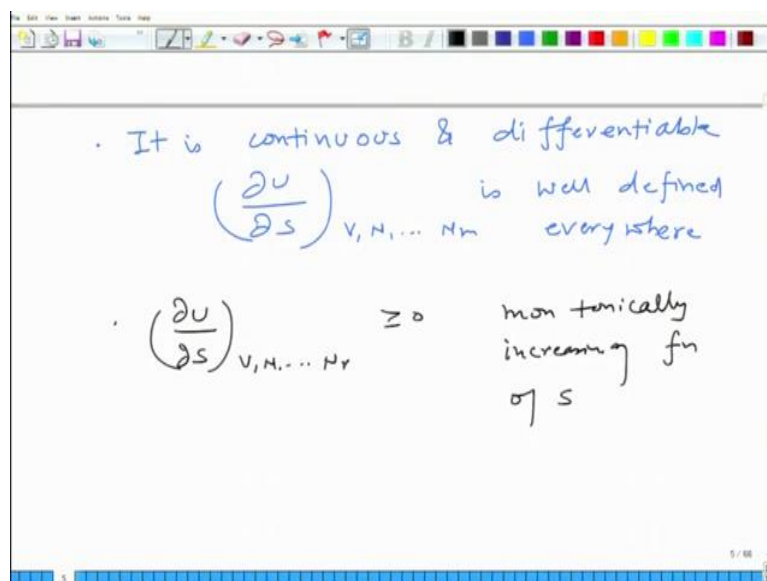 File Edit View Insert Actions Tools Help
B I
. It is continuous & differentiable
(∂U/∂S) V, N, ... Nm is well defined
everywhere
. (∂U/∂S) V, N, ... Nr ≥ 0 mon tonically
increasing fn
of S
5 / 66
5